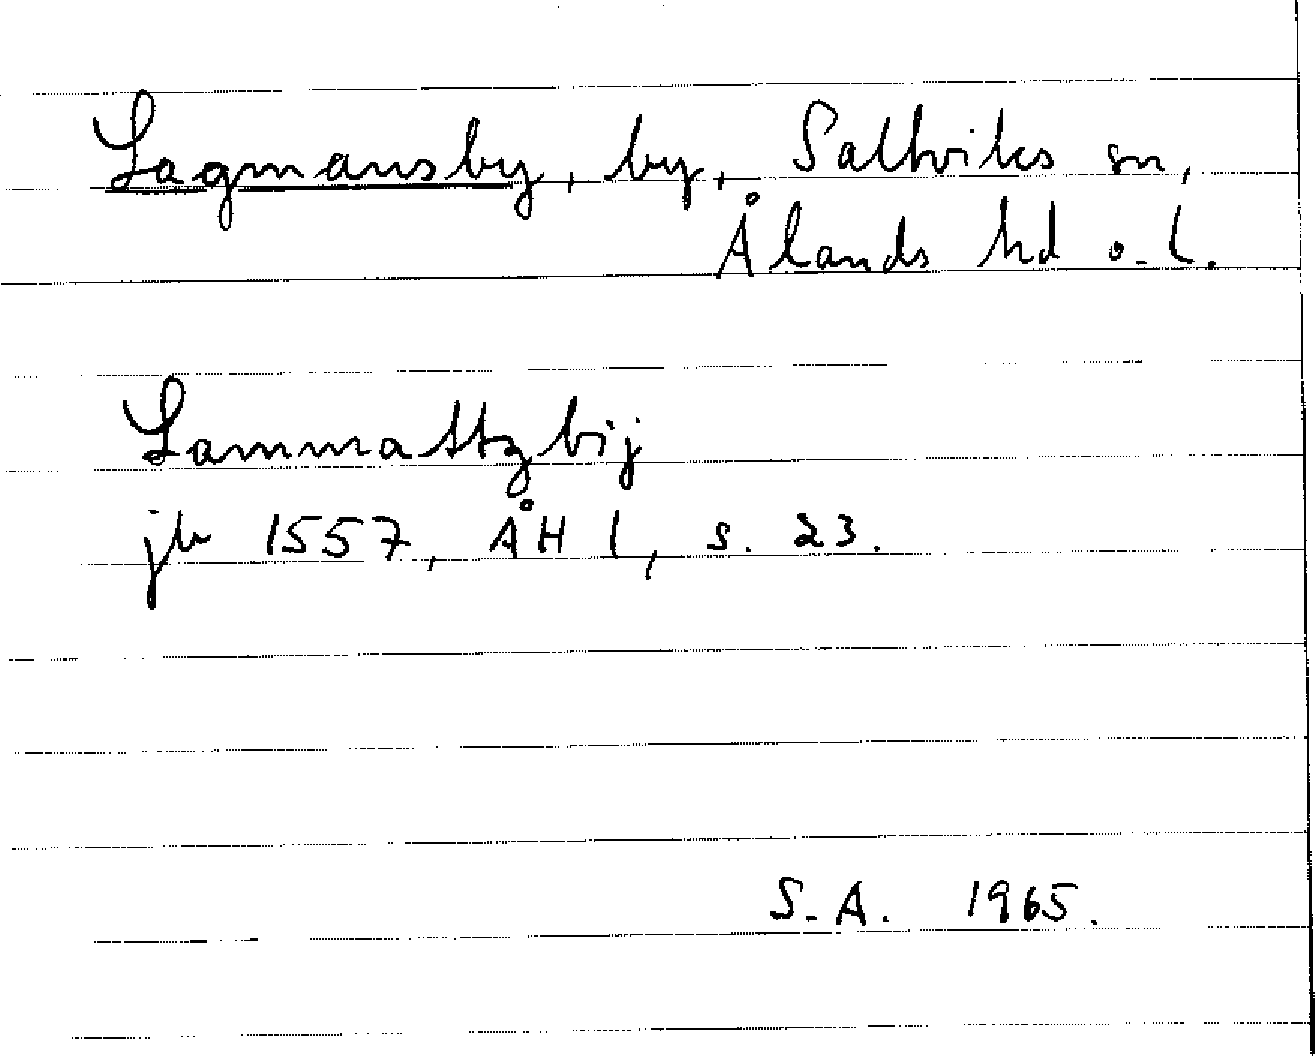 Lagmansby, by, Saltviks sn,
Ålands hd o. l.
Lammattzbij
jb 1557, ÅH 1, s. 23.
S.A. 1965.